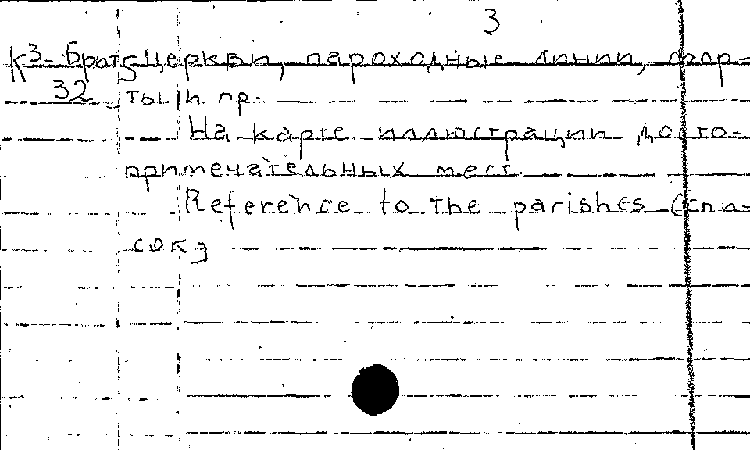 3
К3-Брат5 Церкви, пароходные линии, фор-
32 ты и пр.
На карте иллюстрации досто-
примечательных мест.
Reference to the parishes (спи-
сок)